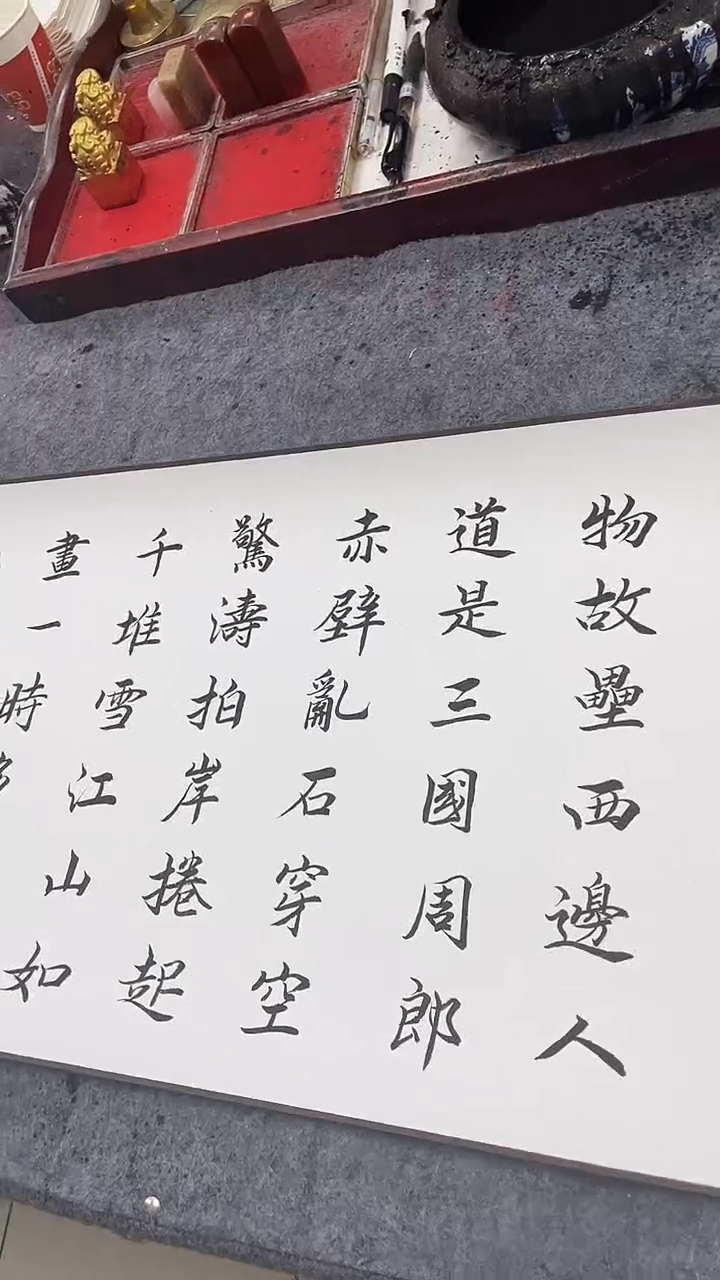 物故壘西邊人
道是三國周郎
赤壁亂石穿空
驚濤拍岸捲起
千堆雪江山如
畫一時